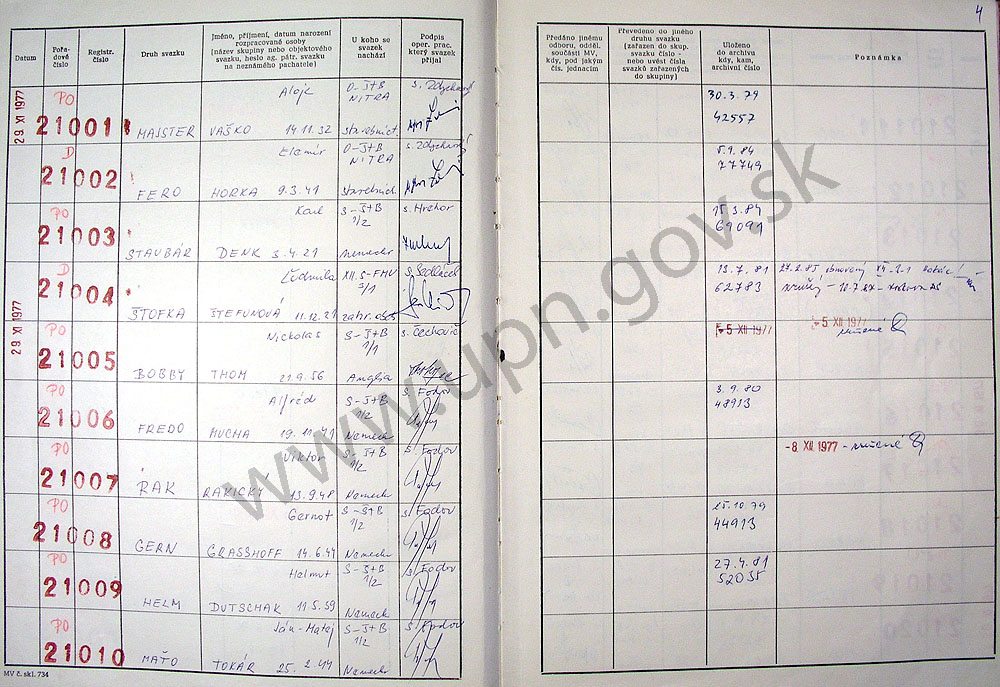 4
Datum
Pořadové číslo
Registr. číslo
Druh svazku
Jméno, příjmení, datum narození
rozpracované osoby
(název skupiny nebo objektového
svazku, heslo ag. pátr. svazku
na neznámého pachatele)
U koho se
svazek
nachází
Podpis
oper. prac.
který svazek
přijal
Předáno jinému
odboru, odděl.
součásti MV,
kdy, pod jakým
čís. jednacím
Převedeno do jiného
druhu svazku
(zařazen do skup.
svazku číslo -
nebo uvést čísla
svazků zařazených
do skupiny)
Uloženo
do archivu
kdy, kam,
archivní číslo
Poznámka
29 XI 1977
PO 21001 MAJSTER Alojz VAŠKO 14.11.32 O-ŠtB NITRA 30.3.79 42557
D 21002 FERO Elemír HORKA 9.3.41 O-ŠtB NITRA 5.9.84 77749
PO 21003 STAUBÁR Karl DENK 3.4.21 S-ŠtB 1/2 s. Hrehor 15.3.84 69091
D 21004 ŠTOFKA Ľudmila ŠTEFUNOVÁ 11.12.21 XII. S-FMV s. Sedláček 13.7.81 62783
29 XI 1977
PO 21005 BOBBY Nickolas THOM 21.9.56 S-ŠtB 1/1 Anglia s. Čechovič 5 XII 1977 5 XII 1977 zrušené
PO 21006 FREDO Alfréd MUCHA 19.11.41 S-ŠtB 1/2 Nemecko s. Fodor 3.9.80 48913
PO 21007 RAK Viktor RAKICKÝ 13.9.48 S-ŠtB 1/2 Nemecko s. Fodor -8 XII 1977 - zrušené
PO 21008 GERN Gernot GRASSHOFF 14.6.44 S-ŠtB 1/2 Nemecko s. Fodor 25.10.79 44913
PO 21009 HELM Helmut DUTSCHAK 11.5.39 S-ŠtB 1/2 Nemecko s. Fodor 27.4.81 52035
PO 21010 MAŤO Ján-Matej TOKÁR 25.2.44 S-ŠtB 1/2 Nemecko s. Fodor
MV č. skl. 734
www.upn.gov.sk